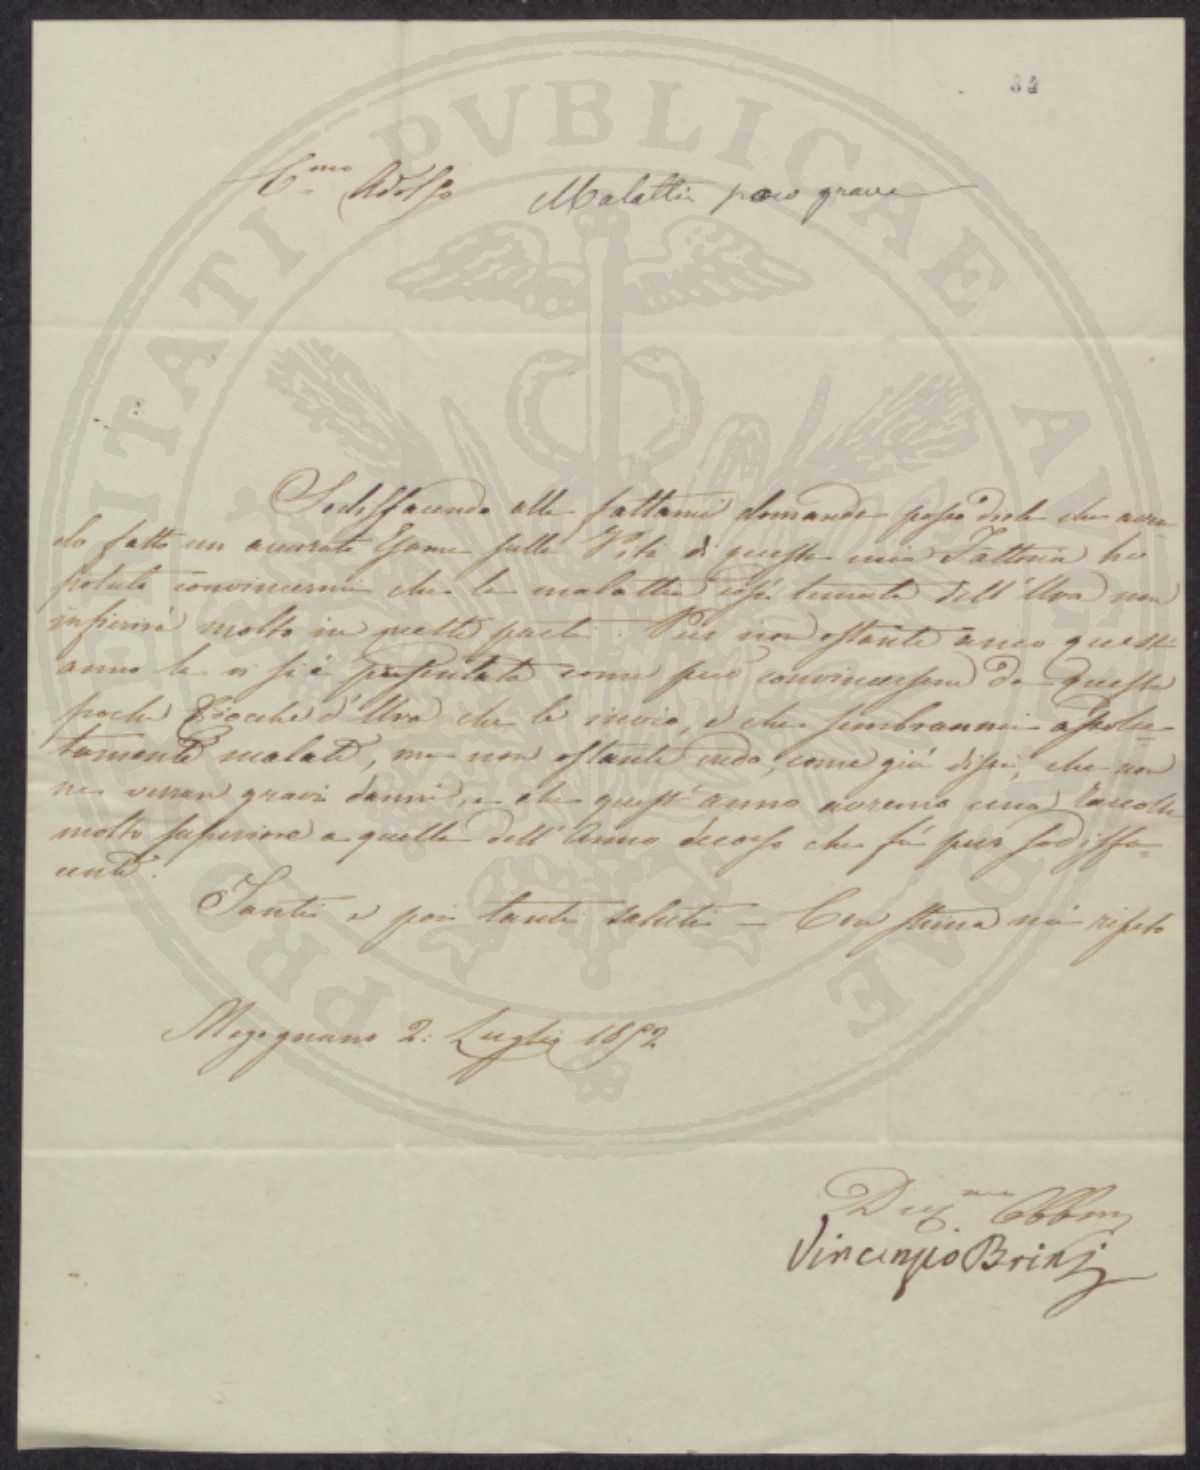 34
C.mo Adolfo Malattia poco grave
Sodisfacendo alla fattami domanda posso dirle che aven-
do fatto un accurato Esame sulle Viti di questa mia Fattoria ho
potuto convincermi che la malattia così temuta dell'Uva non
infierirà molto in quelle parti. Pur non ostante anco quest'
anno la vi si è presentata come può convincersene da queste
poche Ciocche d'Uva che le invio, e che sembranmi assolu-
tamente malate, ma non ostante credo, come già dissi, che non
ne verran gravi danni, e che quest'anno avremo una raccolta
molto superiore a quella dell'Anno decorso che fù pur sodisfa-
cente.
Tanti e poi tanti saluti – Con stima mi ripeto
Mezzgnano 2: Luglio 1852
Dev.mo Obblmo
Vincenzio Brinzi
PROSPERITATI PVBLICAE AVGENDAE